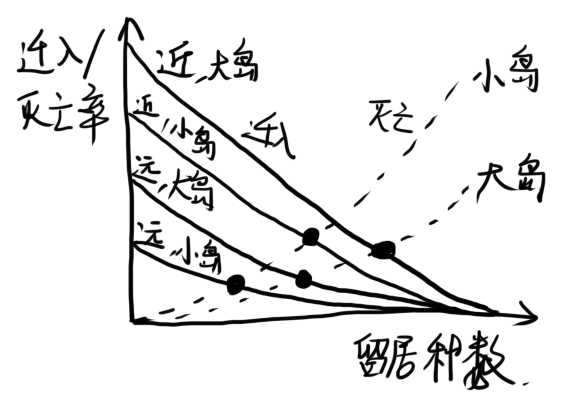 迁入/
灭亡率
近,大岛
近,小岛
迁入
远,大岛
远,小岛
灭亡
小岛
大岛
留居种数